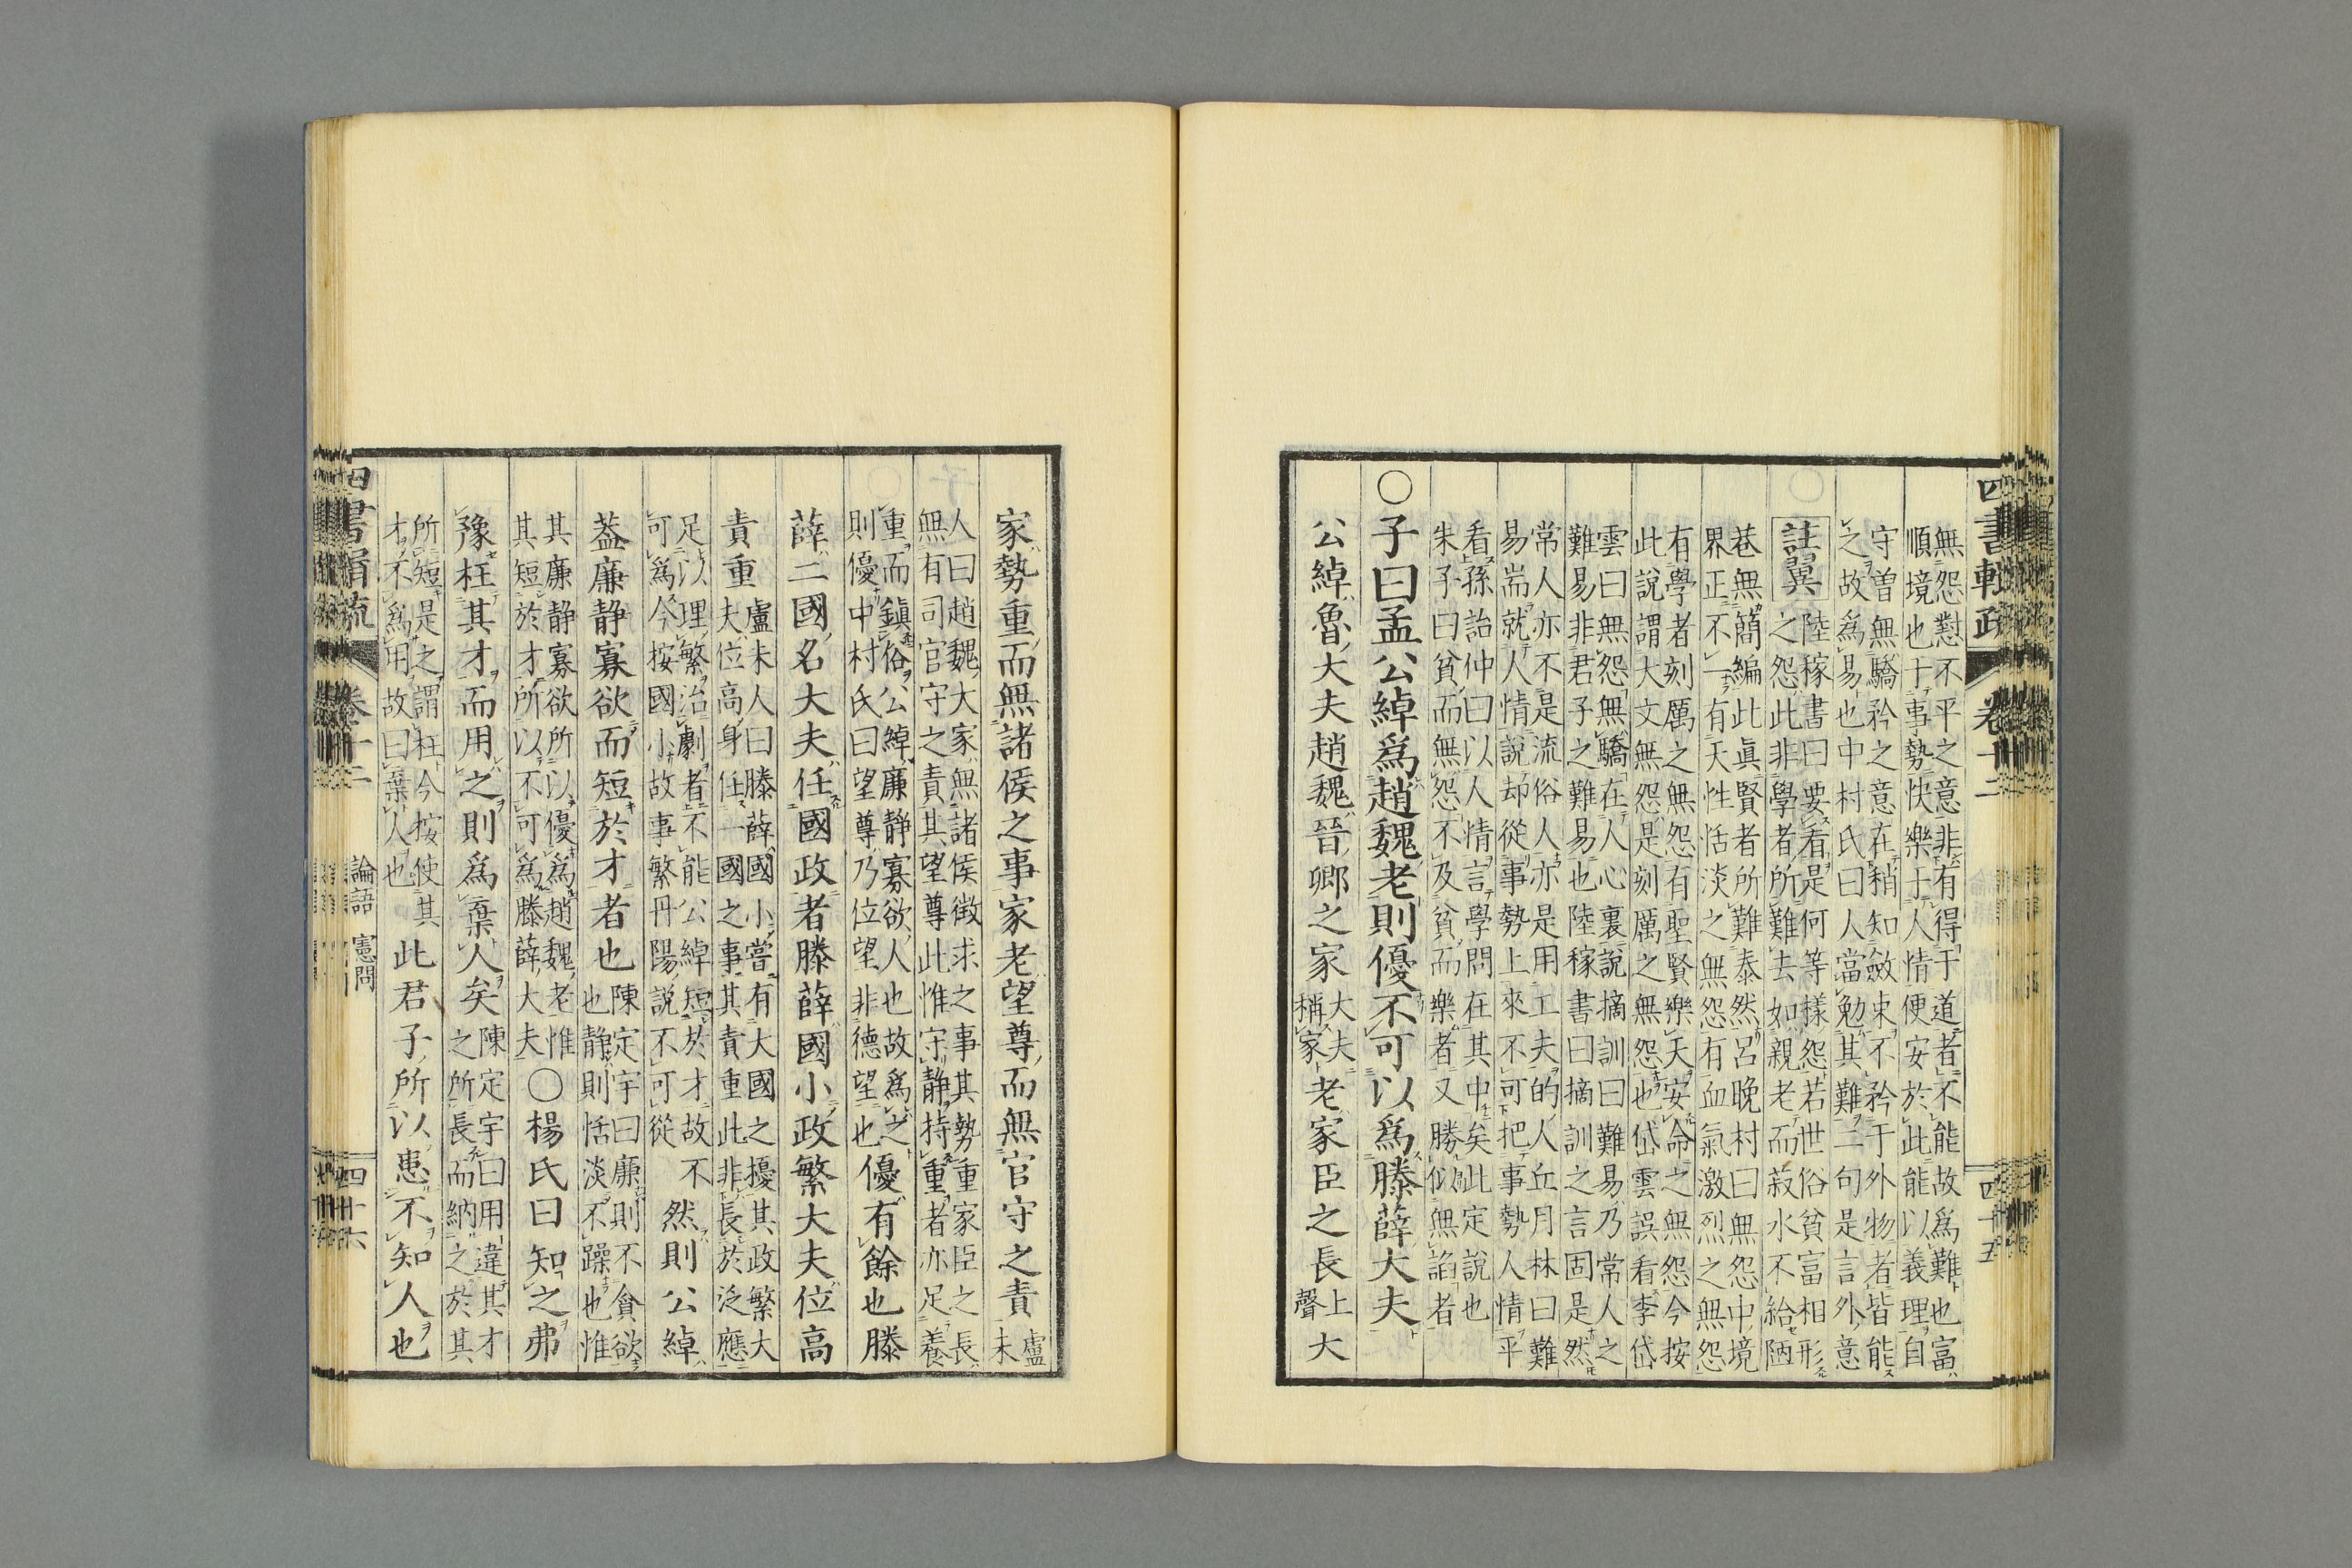 無怨懟不平之意非有得于道者不能故爲難也富
順境也于事勢快樂于人情便安於此能以義理自
守曽無驕矜之意在稍知斂束不矜于外物者皆能
之故爲易也中村氏曰人當勉其難二句是言外意
註翼
陸稼書曰要看是何等様怨若世俗貧富相形
之怨此非學者所難去如親老而菽水不給陋
巷無簡編此眞賢者所難泰然呂晩村曰無怨中境
界正不一有天性恬淡之無怨有血氣激烈之無怨
有學者刻厲之無怨有聖賢樂天安命之無怨今按
此説謂大文無怨是刻厲之無怨也岱雲誤看李岱
雲曰無怨無驕在人心裏説摘訓曰難易乃常人之
難易非君子之難易也陸稼書曰摘訓之言固是然
常人亦不是流俗人亦是用工夫的人丘月林曰難
易耑就人情説却從事勢上來不可把事勢人情平
看孫詒仲曰以人情言學問在其中矣此定説也
朱子曰貧而無怨不及貧而樂者又勝似無諂者
○子曰孟公綽爲趙魏老則優不可以爲滕薛大夫
公綽魯大夫趙魏晉卿之家
大夫
稱家
老家臣之長
上
聲
大
四書輯疏
卷十二
四十五
家勢重而無諸侯之事家老望尊而無官守之責
盧
未
人曰趙魏大家無諸侯徴求之事其勢重家臣之長
無有司官守之責其望尊此惟守静持重者亦足養
重而鎮俗公綽廉静寡欲人也故爲之
則優中村氏曰望尊乃位望非德望也
優有餘也滕
薛二國名大夫任國政者滕薛國小政繁大夫位高
責重
盧未人曰滕薛國小嘗有大國之擾其政繁大
夫位高身任一國之事其責重此非長於泛應
足以理繁治劇者不能公綽短於才故不
可爲今按國小故事繁丹陽説不可從
然則公綽
蓋廉静寡欲而短於才者也
陳定宇曰廉則不貪欲
也静則恬淡不躁也惟
其廉静寡欲所以優爲趙魏老惟
其短於才所以不可爲滕薛大夫
○楊氏曰知之弗
豫枉其才而用之則爲棄人矣
陳定宇曰用違其才
之所長而納之於其
所短是之謂枉今按使其
才不爲用故曰棄人也
此君子所以患不知人也
四書輯疏
卷十二
論語
憲問
四十六